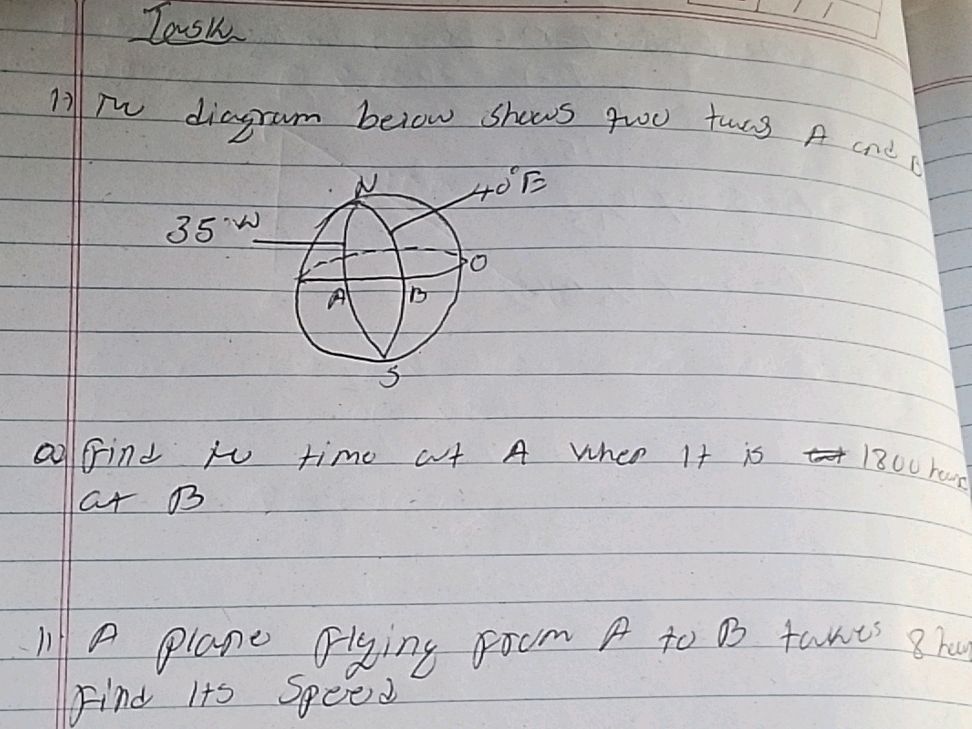 Task
1) The diagram below shows two towns A and B
N
40°E
35°W
O
A B
S
a) Find the time at A when it is 1800 hours
at B
ii) A plane flying from A to B takes 8 hours
Find its speed